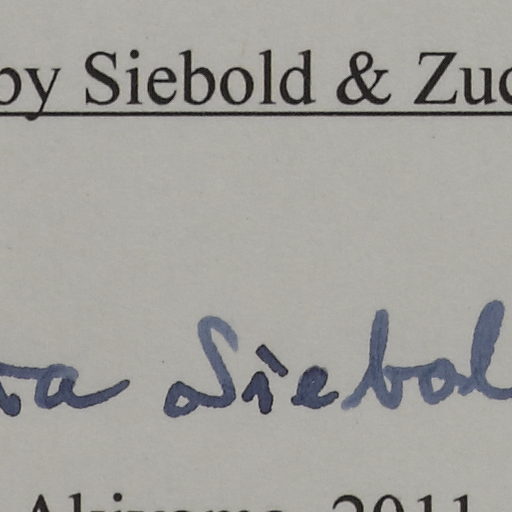 by Siebold & Zuc
ra Siebol
Akiyama, 2011